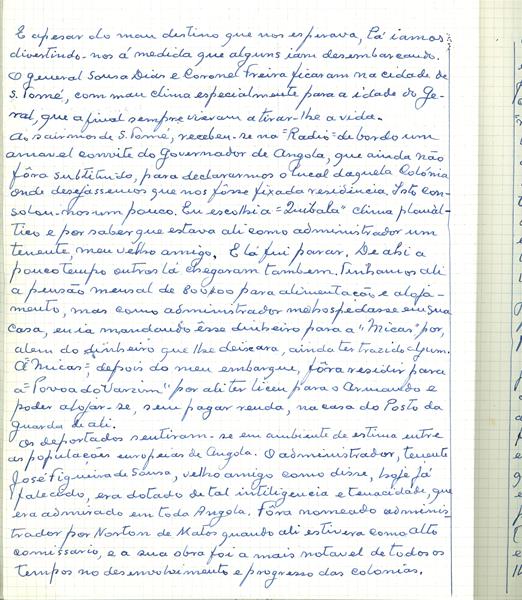 E apesar do mau destino que nos esperava, lá iamos
divertindo-nos á medida que alguns iam desembarcando.
O general Sousa Dias e Coronel Freira ficaram na cidade de
S. Tomé, com mau clima especialmente para a idade do Ge-
ral, que afinal sempre vieram a tirar-lhe a vida.
Ao sairmos de S. Tomé, recebeu-se na "Radio" de bordo um
amavel convite do Governador de Angola, que ainda não
fôra substituido, para declararmos o local daquela Colónia
onde desejássemos que nos fôsse fixada residência. Isto con-
solou-nos um pouco. Eu escolhi a "Quibala" clima planál-
tico e por saber que estava ali como administrador um
tenente, meu velho amigo. E lá fui parar. De ahi a
pouco tempo outros lá chegaram tambem. Tinhamos ali
a pensão mensal de 800$00 para alimentação e aloja-
mento, mas como o administrador me hospedasse em sua
casa, eu ia mandando êsse dinheiro para a "Micas" por,
alem do dinheiro que lhe deixara, ainda ter trazido algum.
A "Micas", depois do meu embarque, fôra residir para
a "Povoa do Varzim" por ali ter liceu para o Armando e
poder alojar-se, sem pagar renda, na casa do Posto da
guarda de ali.
Os deportados sentiram-se em ambiente de estima entre
as populações europeias de Angola. O administrador, tenente
José Figueira de Sousa, velho amigo como disse, hoje já
falecido, era dotado de tal inteligencia e tenacidade, que
era admirado em toda Angola. Fôra nomeado adminis-
trador por Norton de Matos quando ali estivera como alto
comissario, e a sua obra foi a mais notavel de todos os
tempos no desenvolvimento e progresso das colonias.